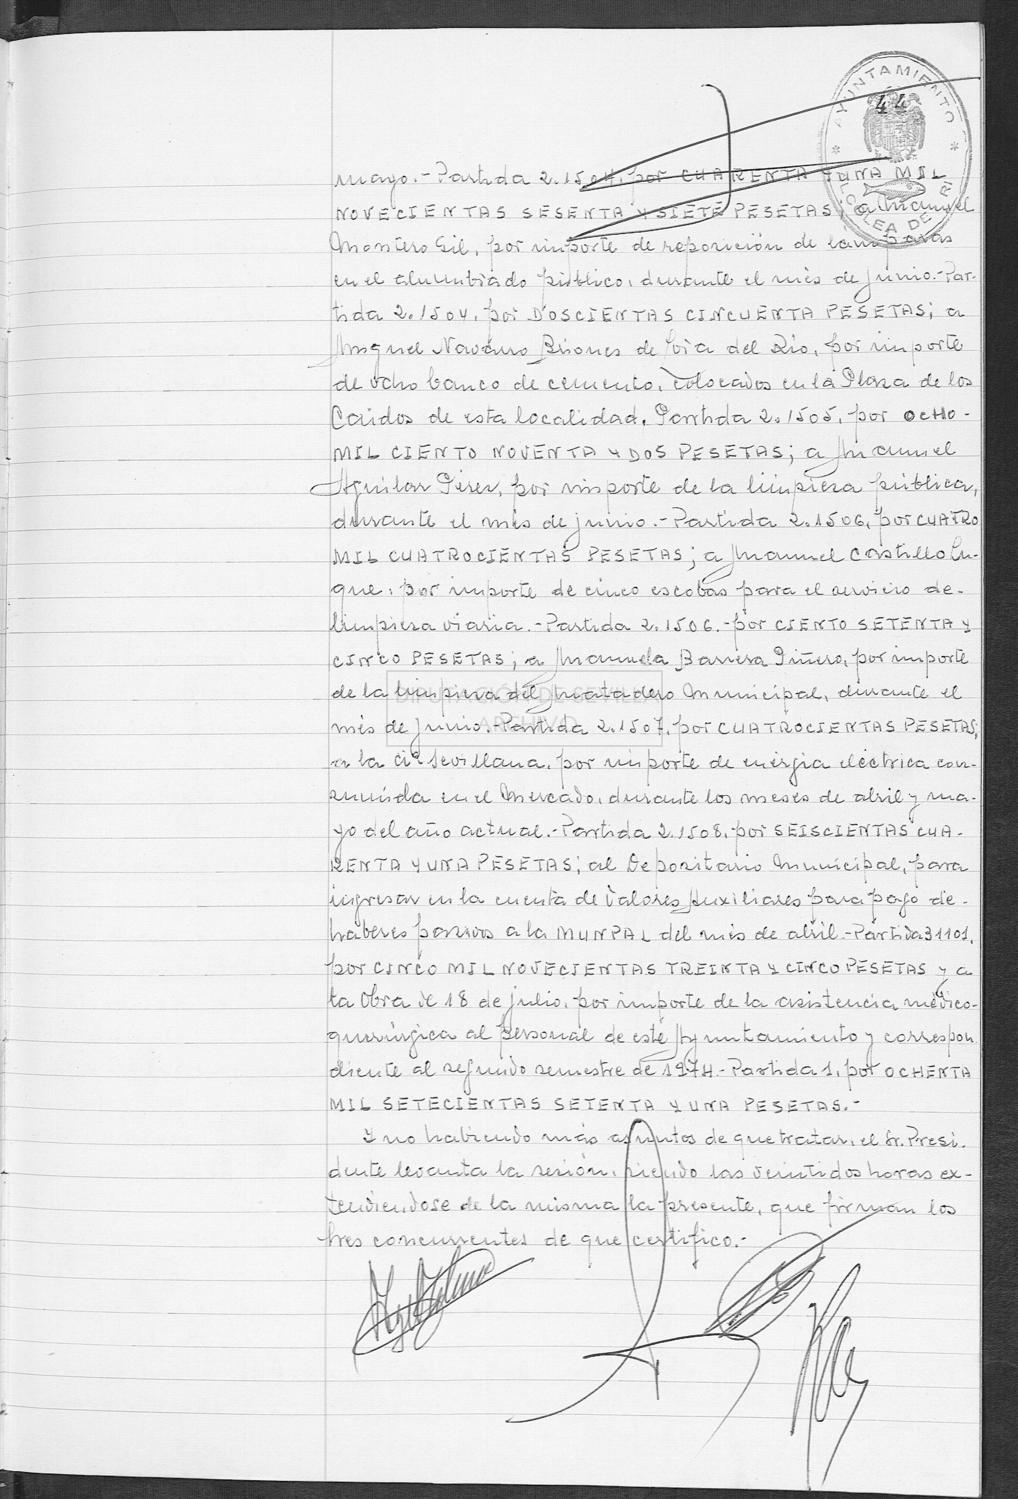 AYUNTAMIENTO
44
ALCOLEA DEL RI
mayo.- Partida 2.1504, por CUARENTA Y UNA MIL
NOVECIENTAS SESENTA Y SIETE PESETAS; a Manuel
Montero Gil, por importe de reposición de lamparas
en el alumbrado público, durante el mes de junio.- Par-
tida 2.1504, por DOSCIENTAS CINCUENTA PESETAS; a
Miguel Navarro Briones de Lora del Rio, por importe
de ocho banco de cemento, colocados en la Plaza de los
Caidos de esta localidad. Partida 2.1505, por OCHO-
MIL CIENTO NOVENTA Y DOS PESETAS; a Manuel
Aguilar Pérez, por importe de la limpieza pública,
durante el mes de junio.- Partida 2.1506, por CUATRO
MIL CUATROCIENTAS PESETAS; a Manuel Castillo Lu-
que, por importe de cinco escobas para el servicio de-
limpieza viaria.- Partida 2.1506.- por CIENTO SETENTA Y
CINCO PESETAS; a Manuela Barrera Piñero, por importe
de la limpieza del Matadero Municipal, durante el
DIPUTACIÓN DE SEVILLA
ARCHIVO
mes de junio.- Partida 2.1507, por CUATROCIENTAS PESETAS;
a la Cia Sevillana, por importe de energia eléctrica con-
sumida en el Mercado, durante los meses de abril y ma-
yo del año actual.- Partida 2.1508, por SEISCIENTAS CUA-
RENTA Y UNA PESETAS; al Depositario Municipal, para
ingresar en la cuenta de Valores Auxiliares para pago de-
haberes pasivos a la MUNPAL del mes de abril.- Partida 31101,
por CINCO MIL NOVECIENTAS TREINTA Y CINCO PESETAS y a
la Obra de 18 de julio, por importe de la asistencia médico-
quirúrgica al personal de este Ayuntamiento y correspon
diente al segundo semestre de 1974.- Partida 1, por OCHENTA
MIL SETECIENTAS SETENTA Y UNA PESETAS.-
Y no habiendo más asuntos de que tratar, el Sr. Presi-
dente levanta la sesión, siendo las veintidos horas ex-
tendiendose de la misma la presente, que firman los
tres concurrentes de que certifico.-